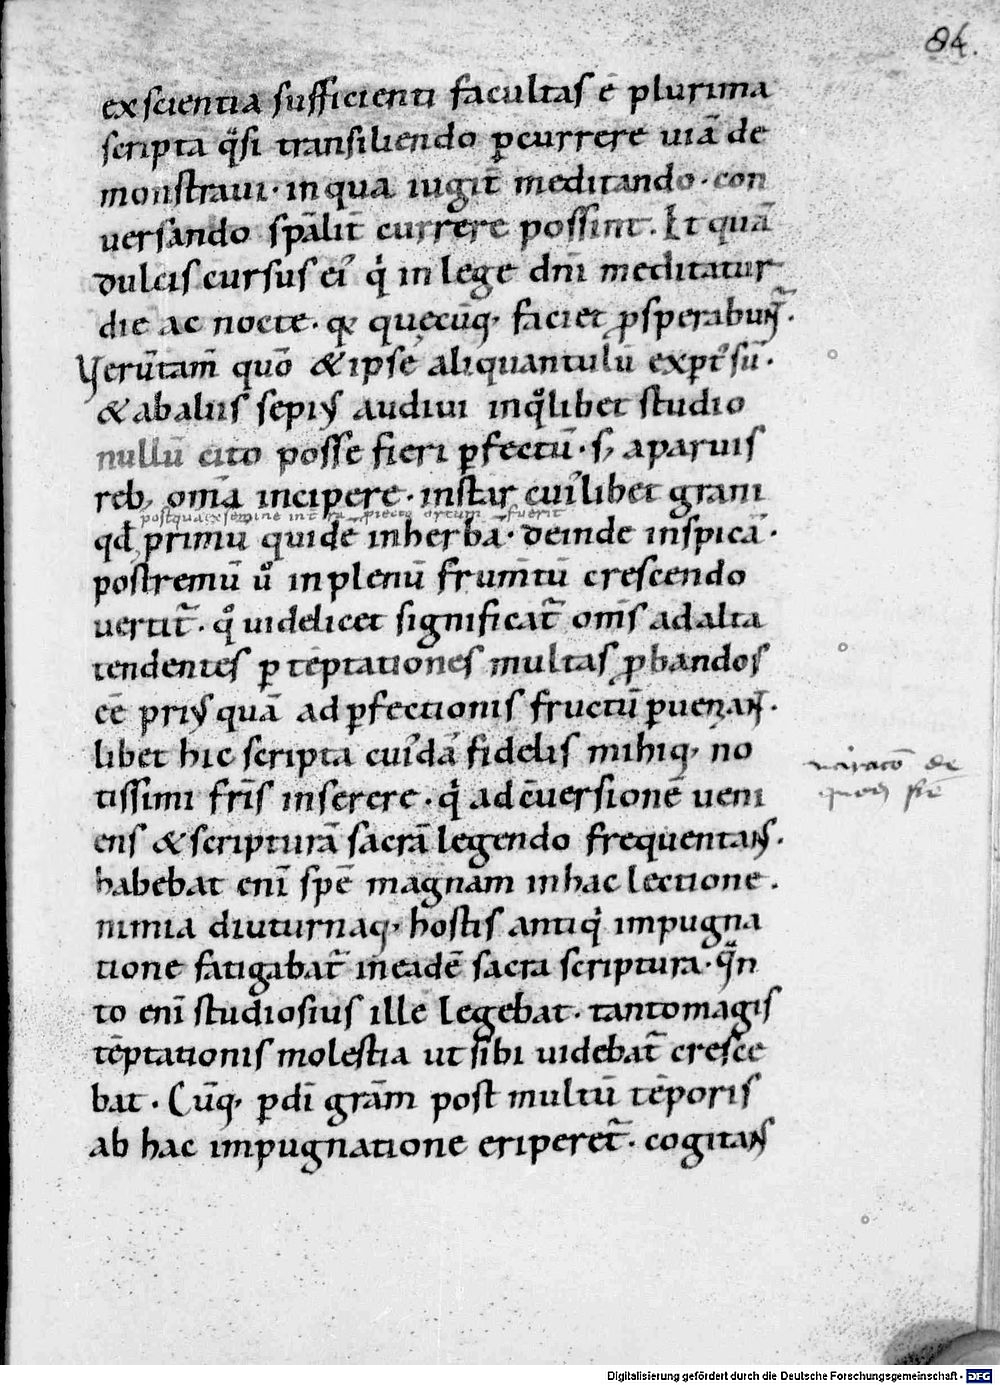 84.
ex scientia sufficienti facultas ē plurima
scripta q̈si transiliendo p̄currere uiā de
monstraui · in qua iugit̄ meditando · con
uersando sp̄alit̄ currere possint. Et quā
dulcis cursus ei᷒ q̇ in lege dnī meditatur
die ac nocte · qꝫ quęcūq; faciet ꝓsperabunt̄ ·
Verūtam̄ quō & ipse aliquantulū exp̄t᷒ sū ·
& ab aliis sepius audiui in q̊libet studio
nullū cito posse fieri ꝑfectū · s; a paruis
reb; om̄a incipere · instar cui᷒libet grani
postquā ex semine in trā piecto ortum fuerit
qd̄ primū quidē in herbā · deinde in spicā ·
postremū u̇o in plenū frum̄tū crescendo
uertit̄ · q̊ uidelicet significat̄ om̄s ad alta
tendentes ꝑ tēptationes multas ꝓbandos
eē prius quā ad ꝑfectionis fructū ꝑueniant ·
libet hic scripta cui᷒dā fidelis mihiq; no
tissimi fr̄is inserere · q̇ ad cōuersionē ueni
ens & scripturā sacrā legendo frequentans ·
habebat enī spē magnam in hac lectione ·
nimia diuturnaq; hostis antiq̇ impugna
tione fatigabat̄ in eadē sacra scriptura · q̈n
to enī studiosius ille legebat · tanto magis
tēptationis molestia ut sibi uidebat̄ cresce
bat · Cūq; ꝑ dī grām post multū tēporis
ab hac impugnatione eriperet̄ · cogitans
Digitalisierung gefördert durch die Deutsche Forschungsgemeinschaft - DFG